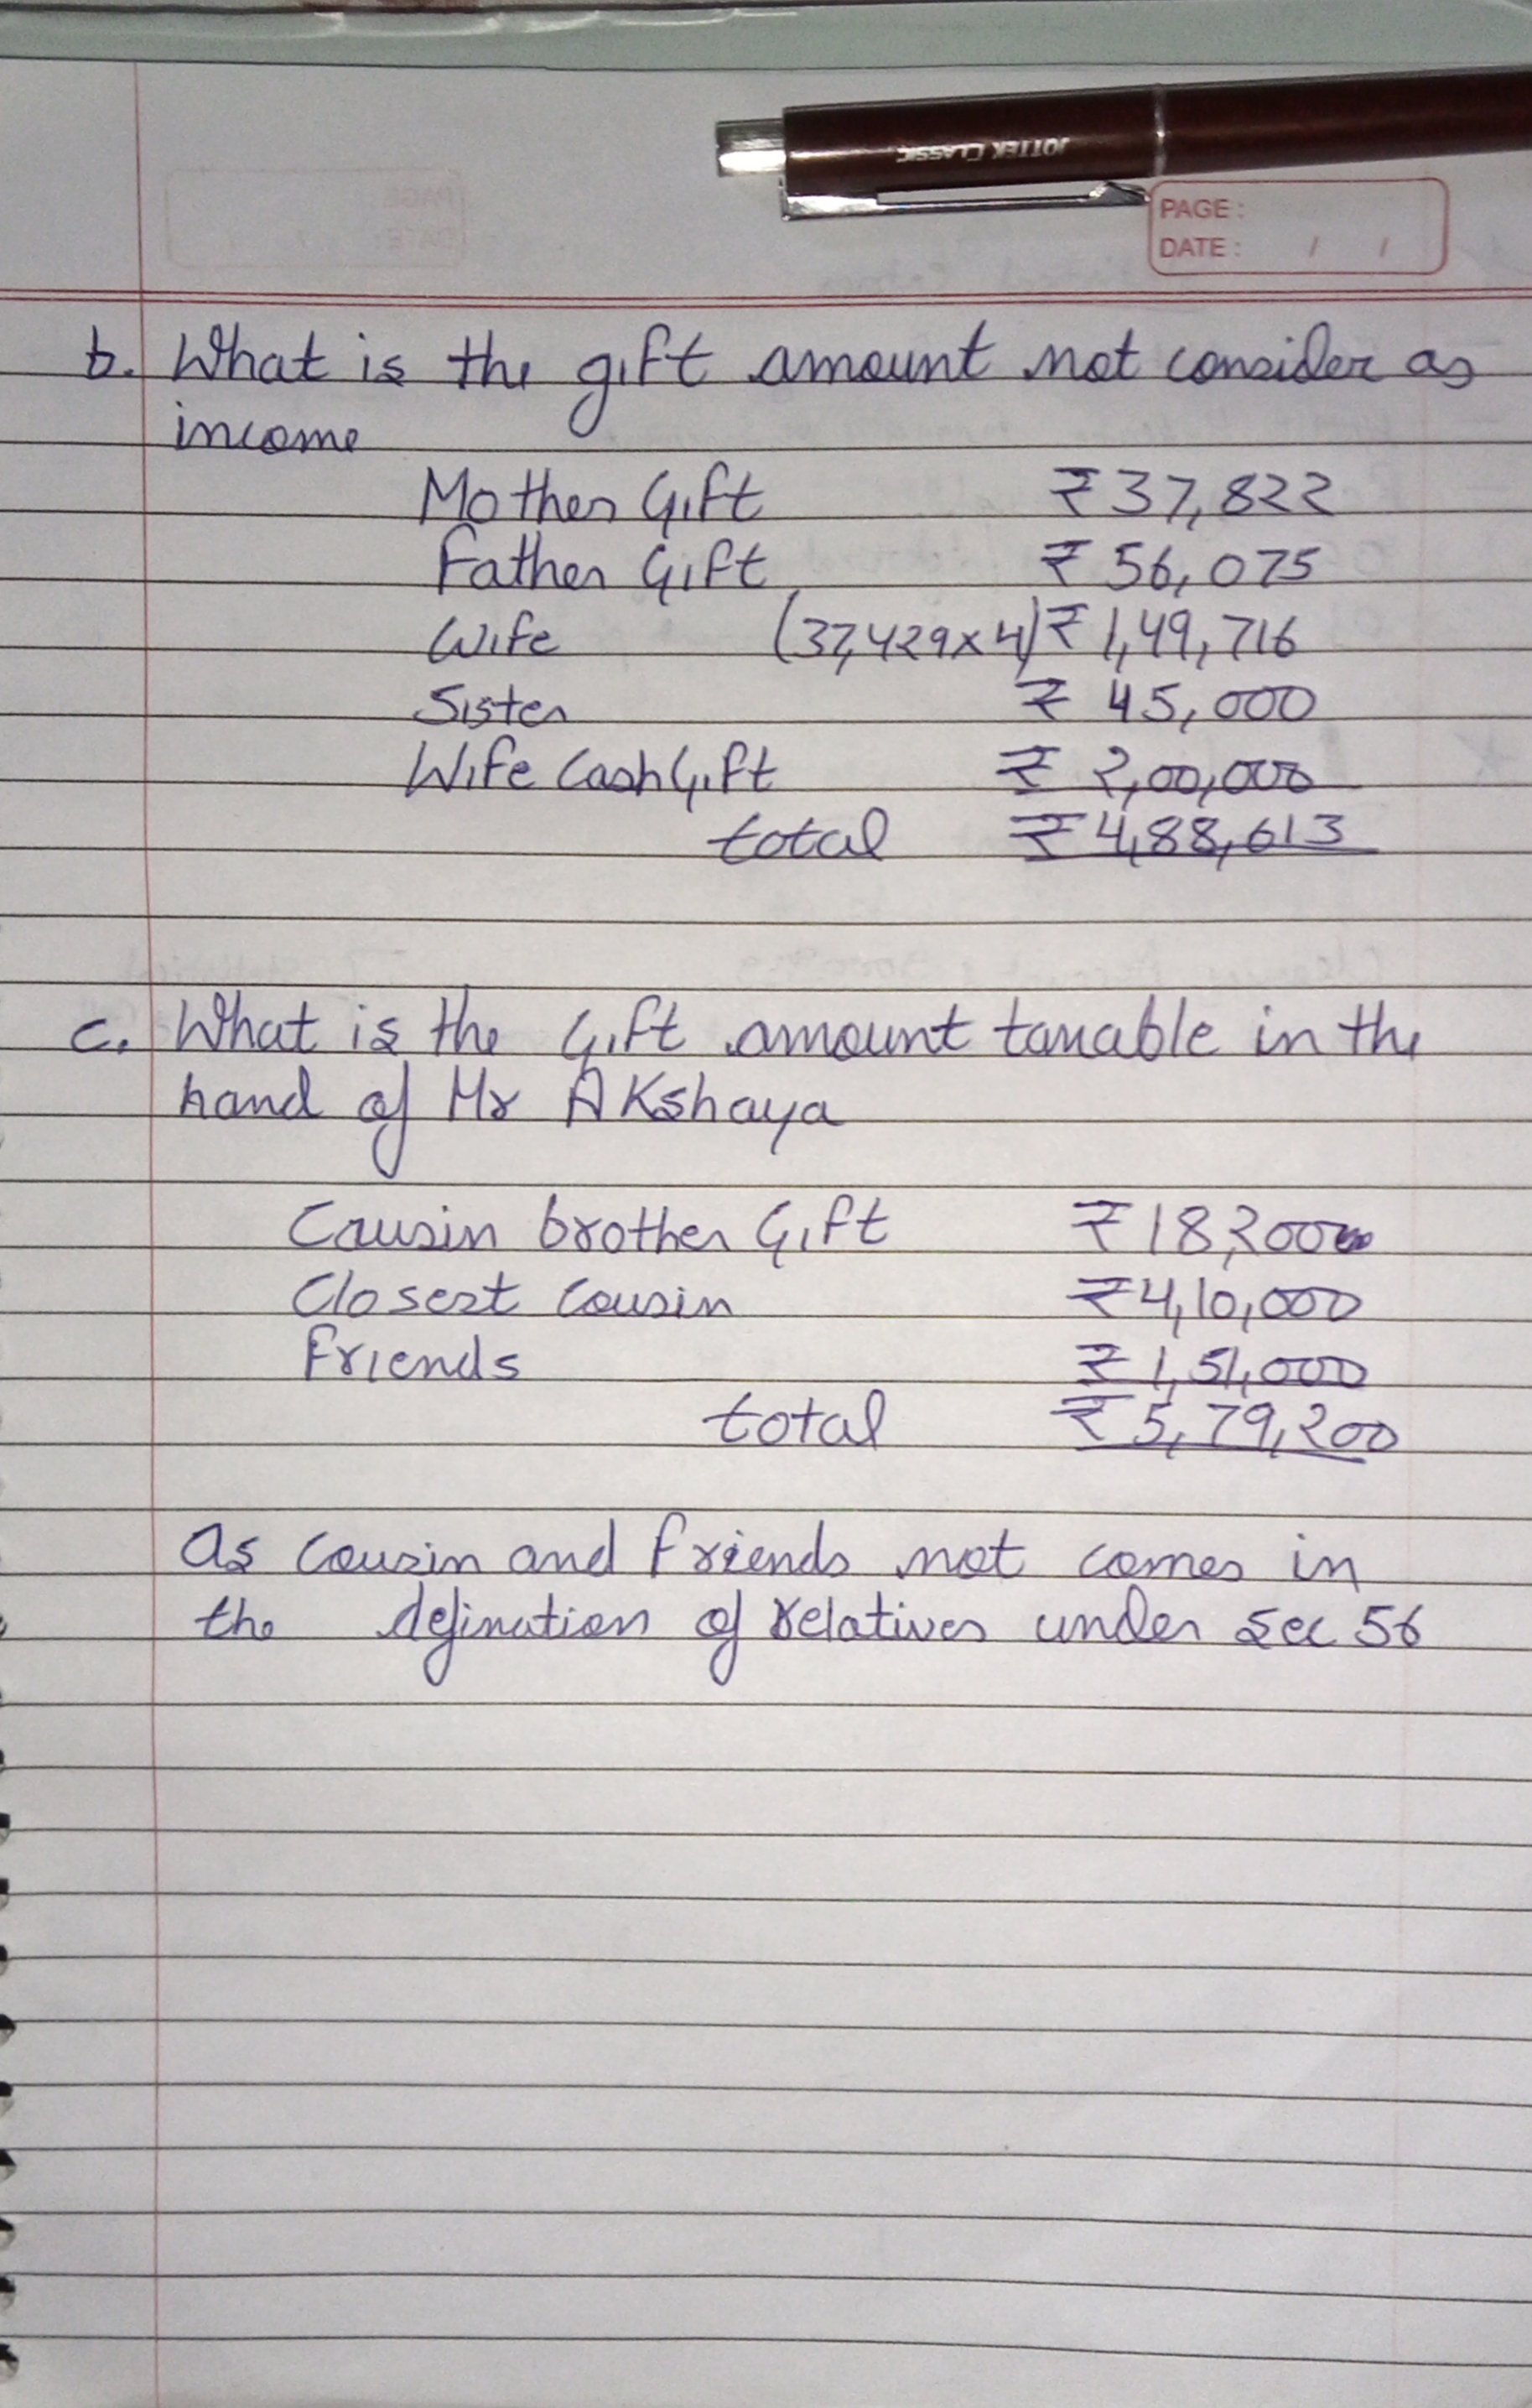 JOTTEK CLASSIC
PAGE :
DATE : / /
b. What is the gift amount not consider as
income
Mother Gift ₹ 37,822
Father Gift ₹ 56,075
Wife (37,429×4) ₹ 1,49,716
Sister ₹ 45,000
Wife Cash Gift ₹ 2,00,000
total ₹ 4,88,613
c. What is the Gift amount taxable in the
hand of Mr Akshaya
Causin brother Gift ₹ 18,200
Closest Cousin ₹ 4,10,000
Friends ₹ 1,51,000
total ₹ 5,79,200
As Cousin and friends not comes in
the defination of relatives under Sec 56